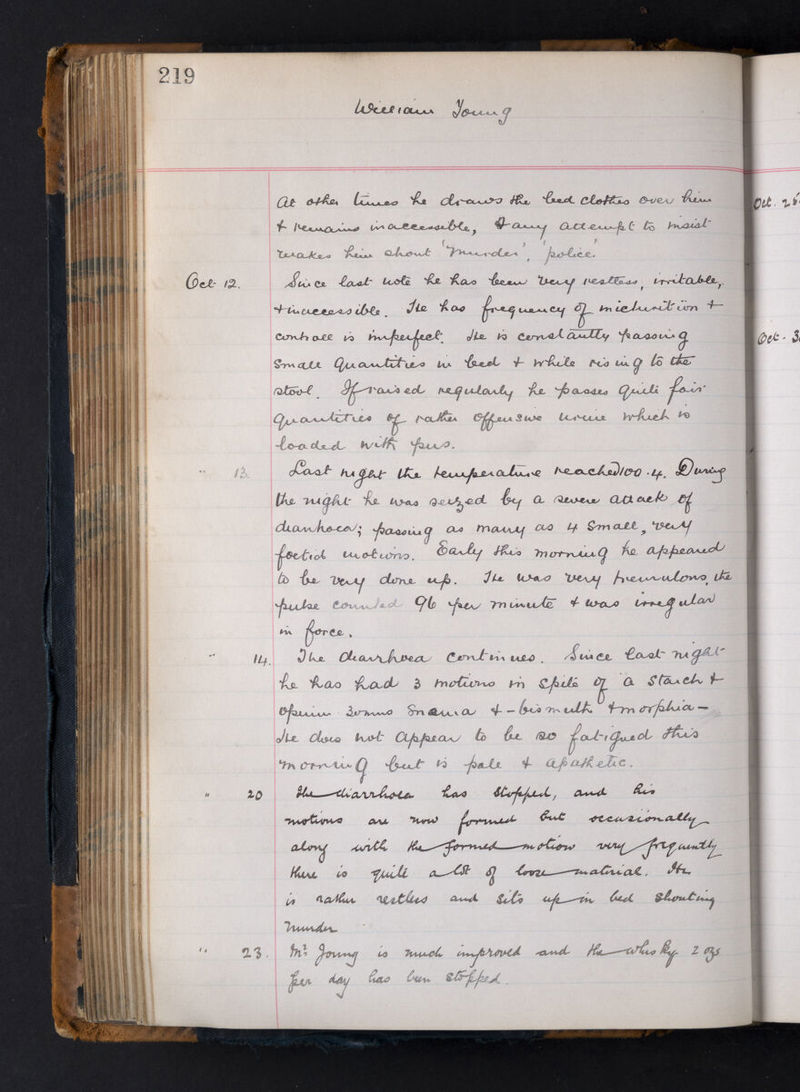 219
William Young
At other times he draws the bed clothes over him
& remains inaccessible, & any attempt to insist
makes him shout 'murder', 'police'.
Oct 12. Since last note he has been very restless, irritable,
& inaccessible. He has frequency of micturition &
controll is imperfect. He is constantly passing
small quantities in bed & while rising to the
stool. If raised regularly he passes quite fair
quantities of rather offensive urine which is
loaded with pus.
" 13. Last night the temperature reached 100.4. During
the night he was seized by a severe attack of
diarrhoea; passing as many as 4 small, very
foetid motions. Early this morning he appeared
to be very done up. He was very tremulous, the
pulse counted 96 per minute & was irregular
in force.
" 14. The diarrhoea continues. Since last night
he has had 3 motions in spite of a starch &
opium enema & - bismuth & morphia -
He does not appear to be so fatigued this
morning but is pale & apathetic.
" 20 The diarrhoea has stopped, and his
motions are now formed but occasionally
along with the formed motion very frequently
there is quite a lot of loose material. He
is rather restless and sits up in bed shouting
murder
" 23. Mr Young is much improved and the whisky 2 ozs
per day has been stopped.
Oct. 26
Oct. 3